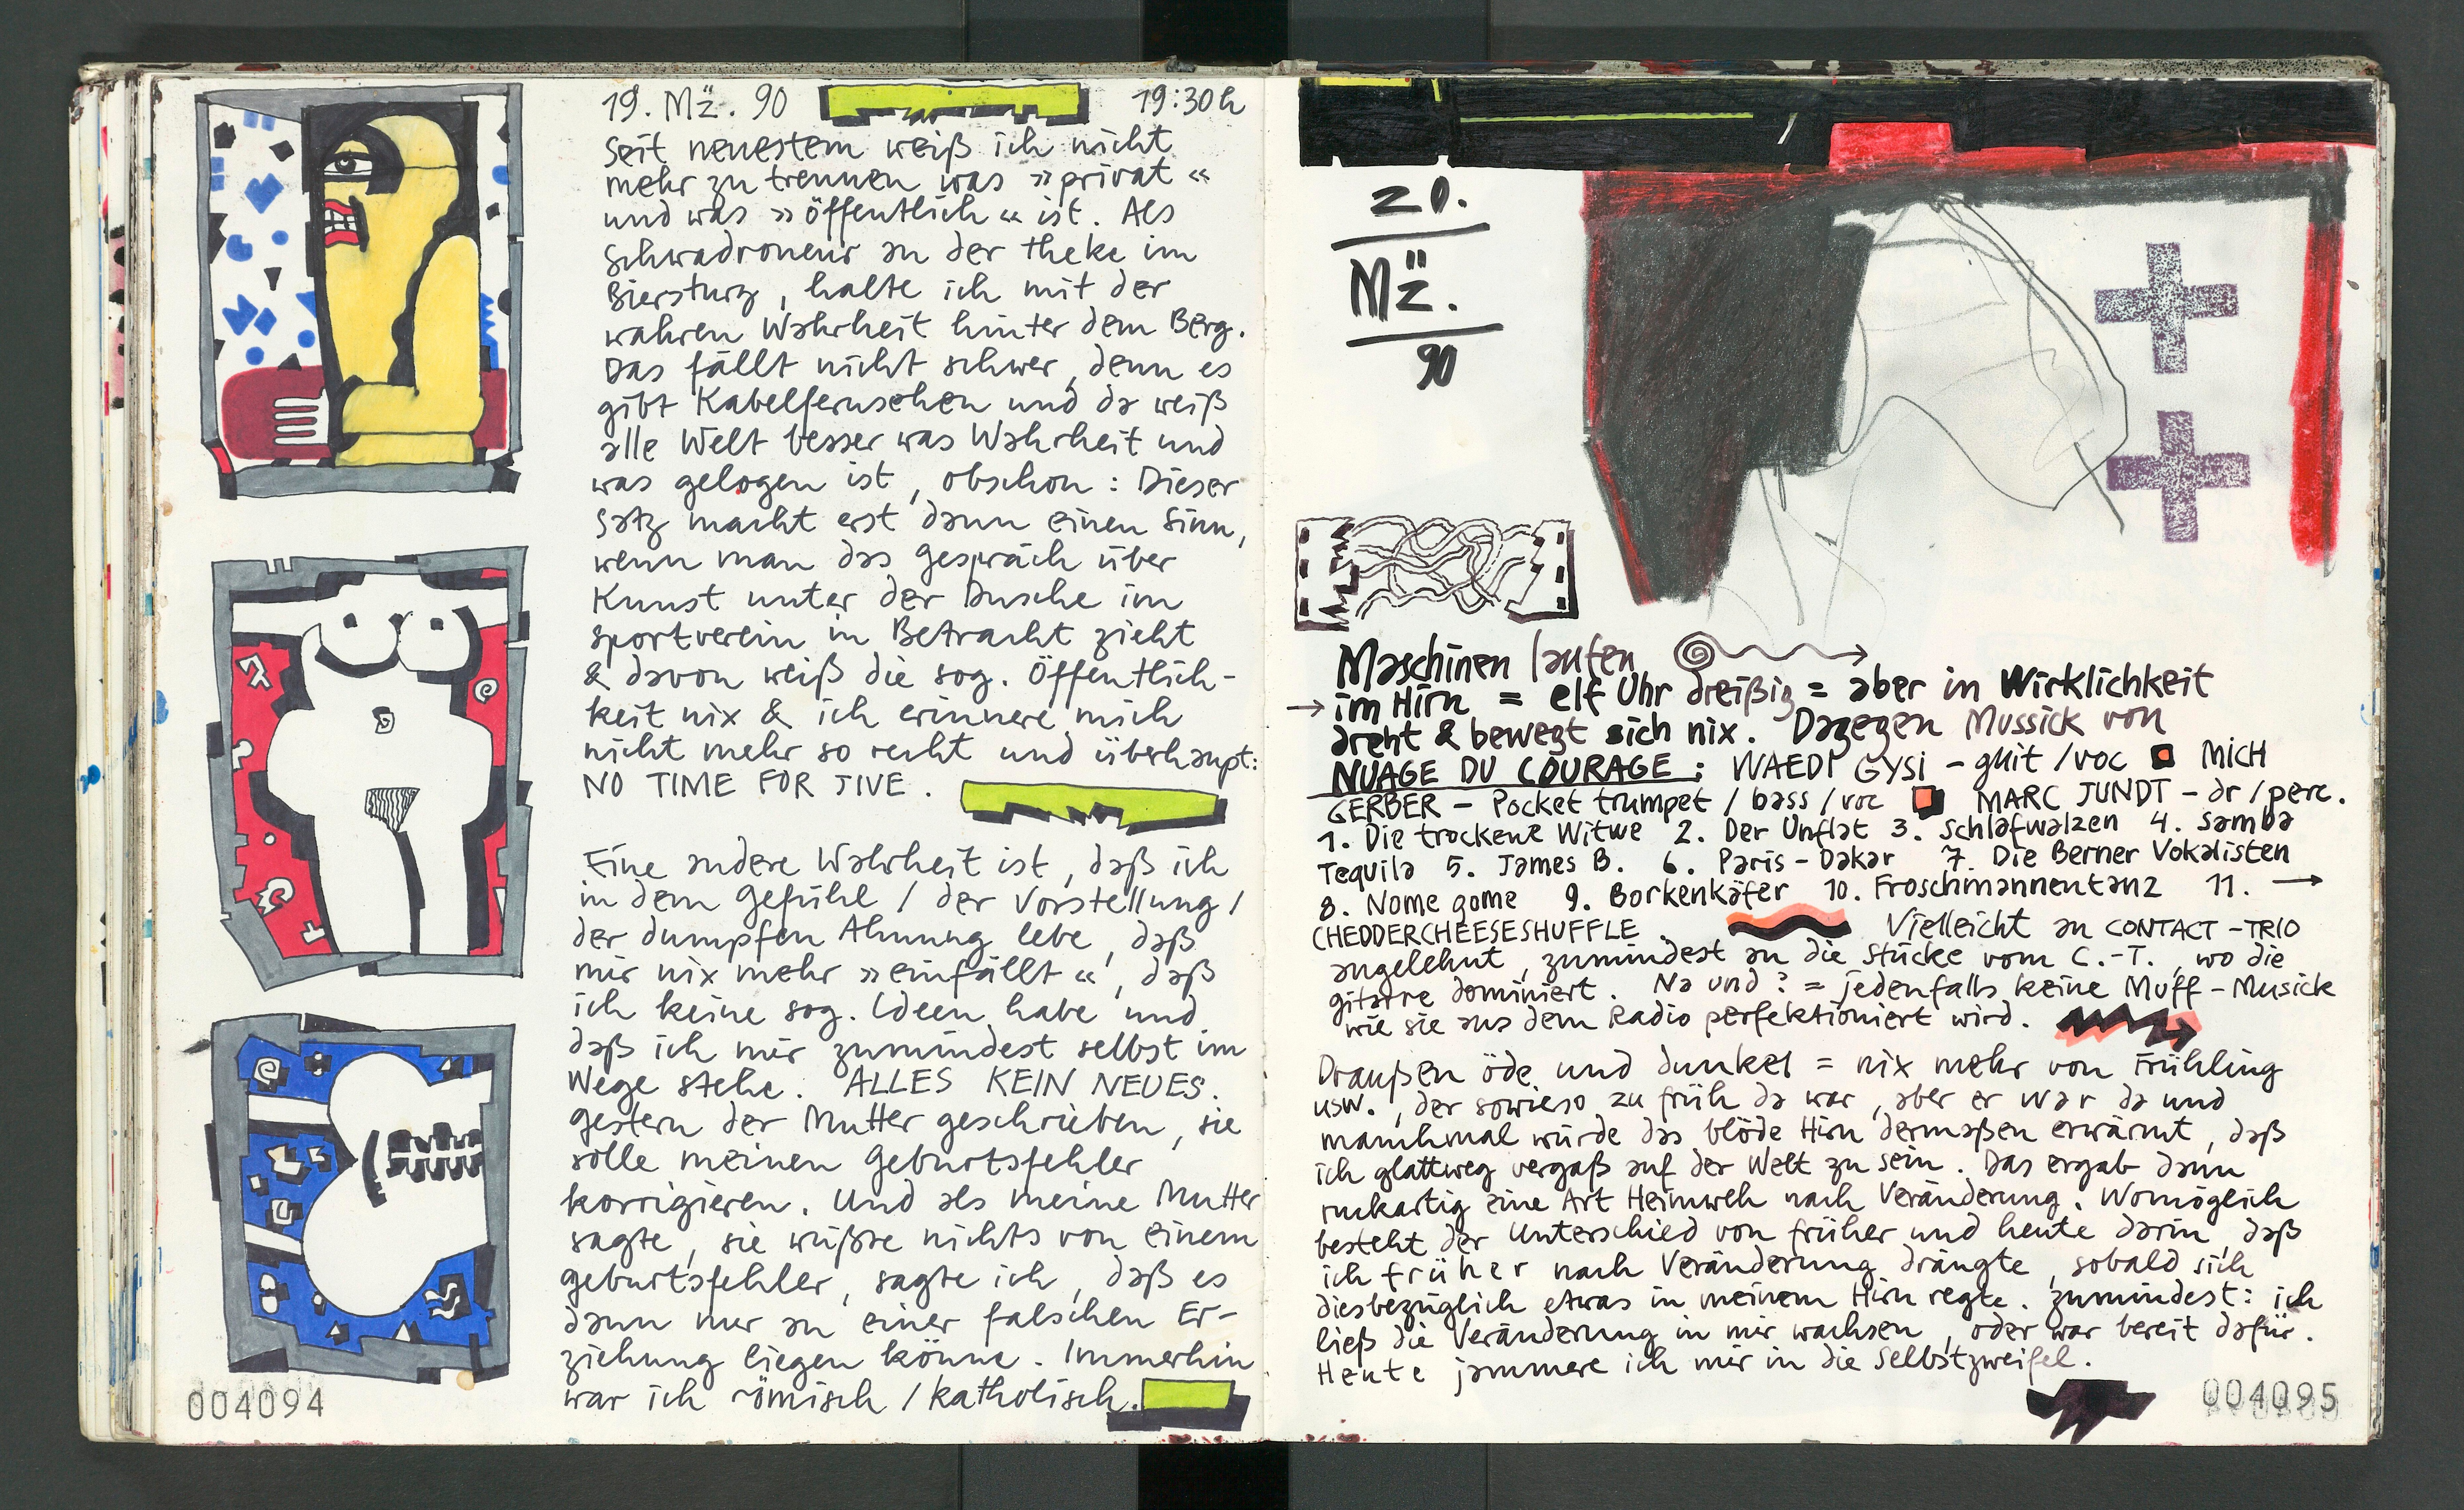 19. Mž. 90 19:30h
Seit neuestem weiß ich nicht
mehr zu trennen was »privat«
und was »öffentlich« ist. Als
Schwadroneur an der Theke im
Biersturz, halte ich mit der
wahren Wahrheit hinter dem Berg.
Das fällt nicht schwer, denn es
gibt Kabelfernsehen und da weiß
alle Welt besser was Wahrheit und
was gelogen ist, obschon: Dieser
Satz macht erst dann einen Sinn,
wenn man das Gespräch über
Kunst unter der Dusche im
Sportverein in Betracht zieht
& davon weiß die sog. Öffentlich-
keit nix & ich erinnere mich
nicht mehr so recht und überhaupt:
NO TIME FOR JIVE.
Eine andere Wahrheit ist, daß ich
in dem Gefühl / der Vorstellung /
der dumpfen Ahnung lebe, daß
mir nix mehr »einfällt«, daß
ich keine sog. Ideen habe und
daß ich mir zumindest selbst im
Wege stehe. ALLES KEIN NEUES.
Gestern der Mutter geschrieben, sie
solle meinen Geburtsfehler
korrigieren. Und als meine Mutter
sagte, sie wüßte nichts von einem
Geburtsfehler, sagte ich, daß es
dann nur an einer falschen Er-
ziehung liegen könne. Immerhin
war ich römisch / katholisch.
004094
20.
Mž.
90
Maschinen laufen
→ im Hirn = elf Uhr dreißig = aber in Wirklichkeit
dreht & bewegt sich nix. Dagegen Mussick von
NUAGE DU COURAGE: WAEDI GYSI - guit / voc MICH
GERBER - Pocket trumpet / bass / voc MARC JUNDT - dr / perc.
1. Die trockene Witwe 2. Der Unflat 3. Schlafwalzen 4. Samba
Tequila 5. James B. 6. Paris-Dakar 7. Die Berner Vokalisten
8. Nome gome 9. Borkenkäfer 10. Froschmannentanz 11. →
CHEDDERCHEESESHUFFLE. Vielleicht an CONTACT-TRIO
angelehnt, zumindest an die Stücke vom C.-T., wo die
Gitarre dominiert. Na und? = jedenfalls keine Muff-Musick
wie sie aus dem Radio perfektioniert wird.
Draußen öde und dunkel = nix mehr von Frühling
usw., der sowieso zu früh da war, aber er war da und
manchmal würde das blöde Hirn dermaßen erwärmt, daß
ich glattweg vergaß auf der Welt zu sein. Das ergab dann
ruckartig eine Art Heimweh nach Veränderung. Womöglich
besteht der Unterschied von früher und heute darin, daß
ich früher nach Veränderung drängte, sobald sich
diesbezüglich etwas in meinem Hirn regte. Zumindest: ich
ließ die Veränderung in mir wachsen, oder war bereit dafür.
Heute jammere ich mir in die Selbstzweifel.
004095